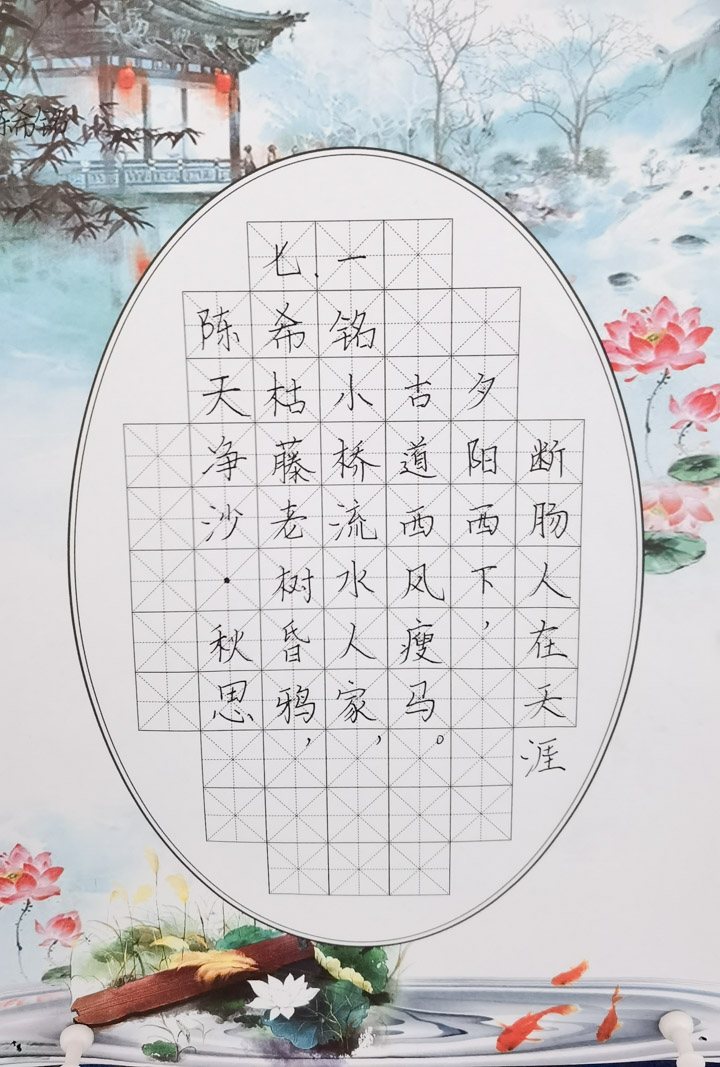 七.一
陈希铭
天净沙·秋思
枯藤老树昏鸦，
小桥流水人家，
古道西风瘦马。
夕阳西下，
断肠人在天涯
陈希铭